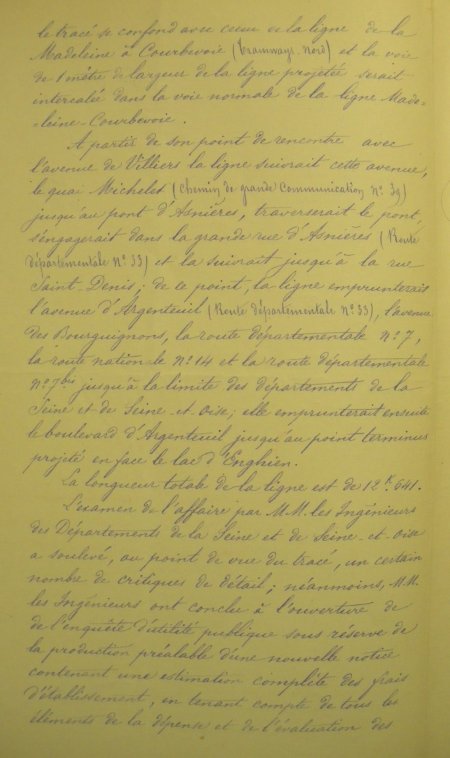 le tracé se confond avec celui de la ligne de la
Madeleine à Courbevoie (Tramways-Nord) et la voie
de 1 mètre de largeur de la ligne projetée serait
intercalée dans la voie normale de la ligne Made-
-leine-Courbevoie.
A partir de son point de rencontre avec
l'avenue de Villiers la ligne suivrait cette avenue,
le quai Michelet (Chemin de grande Communication N° 39)
jusqu'au pont d'Asnières, traverserait le pont,
s'engagerait dans la grande rue d'Asnières (Route
départementale N° 33) et la suivrait jusqu'à la rue
Saint Denis; de ce point, la ligne emprunterait
l'avenue d'Argenteuil (Route départementale N° 33), l'avenue
des Bourguignons, la route départementale N° 7,
la route nation le N° 14 et la route départementale
N° 7 bis jusqu'à la limite des départements de la
Seine et de Seine-et-Oise; elle emprunterait ensuite
le boulevard d'Argenteuil jusqu'au point terminus
projeté en face le lac d'Enghien.
La longueur totale de la ligne est de 12k 641.
L'examen de l'affaire par M.M. les Ingénieurs
des Départements de la Seine et de Seine-et-Oise
a soulevé, au point de vue du tracé, un certain
nombre de critiques de détail; néanmoins, M.M.
les Ingénieurs ont conclu à l'ouverture de
de l'enquête d'utilité publique sous réserve de
la production préalable d'une nouvelle notice
contenant une estimation complète des frais
d'établissement, en tenant compte de tous les
éléments de la dépense et de l'évaluation des